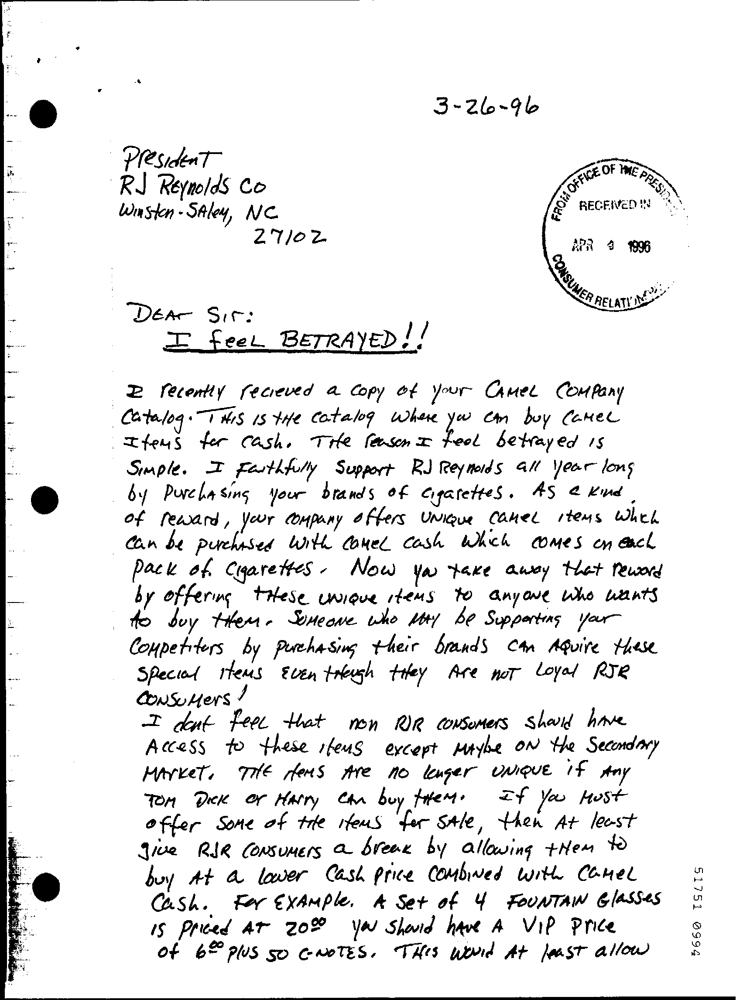 3-26-96
President
RJ Reynolds Co
Winston-Salem, NC
27102
FROM OFFICE OF THE PRESIDENT
RECEIVED IN
APR 1996
CONSUMER RELATIONS
Dear Sir:
I feel BETRAYED!!
I recently recieved a copy of your Camel Company
Catalog. This is the catalog where you can buy Camel
Items for cash. The reason I feel betrayed is
Simple. I Faithfully Support RJ Reynolds all year long
by Purchasing your brands of cigarettes. As a kind
of reward, your company offers unique Camel items which
can be purchased with Camel Cash which comes on each
pack of cigarettes. Now you take away that reward
by offering these unique items to anyone who wants
to buy them. Someone who may be Supporting your
Competitors by purchasing their brands can Aquire these
Special items even though they Are not Loyal RJR
Consumers!
I dont feel that non RJR consumers should have
Access to these items except maybe on the Secondary
Market. The items Are no longer unique if Any
Tom Dick or Harry can buy them. If you must
offer Some of the items for sale, then At least
give RJR consumers a break by allowing them to
buy At a lower Cash price combined with Camel
Cash. For Example. A Set of 4 Fountain Glasses
is Priced At 20.00 you should have A VIP Price
of 6.00 plus 50 C-Notes. This would At least allow
51751 0994